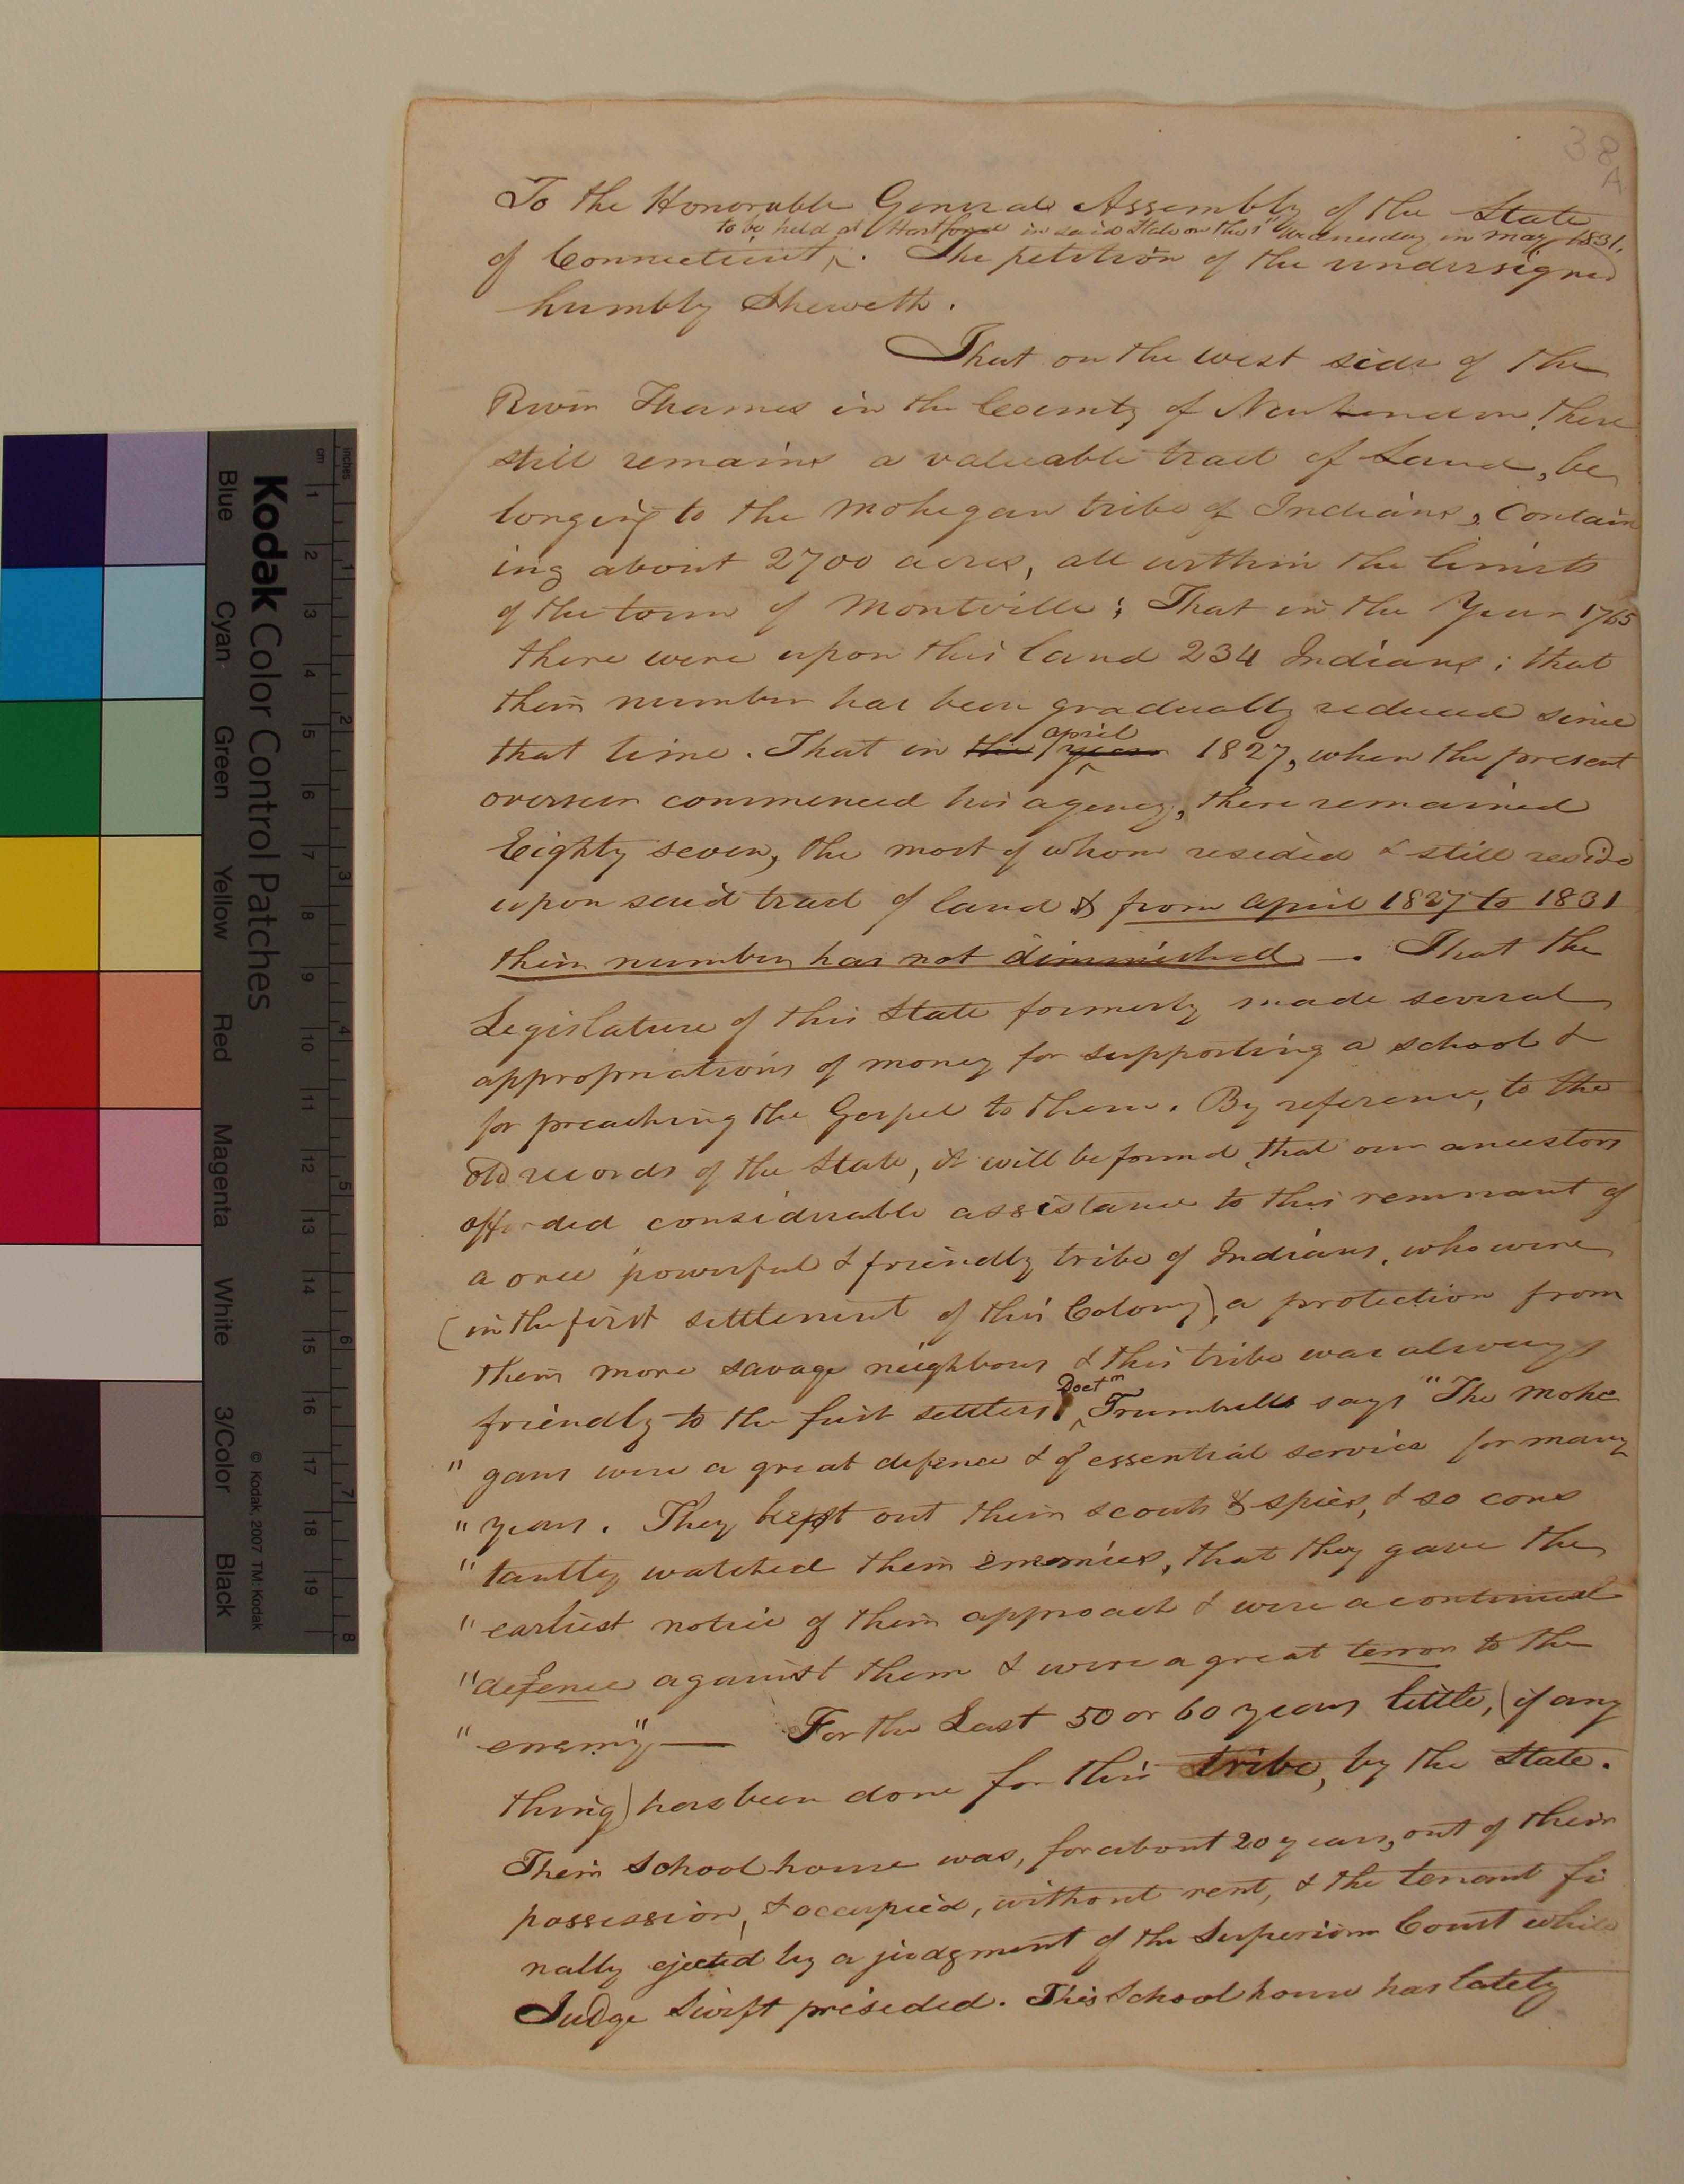 38
A
To the Honorable General Assembly of the State
to be held at Hartford in said State on the 1st Wednesday in May 1831.
of Connecticut ^. The petition of the undersigned
humbly Sheweth.
That on the west side of the
River Thames in the County of New London, there
still remains a valuable tract of Land, be
longing to the Mohegan tribe of Indians, Contain
ing about 2700 acres, all within the limits
of the town of Montville; That in the Year 1765
there were upon this land 234 Indians; that
their number has been gradually reduced since
april
that time. That in the year ^ 1827, when the present
overseer commenced his agency, there remained
Eighty seven, the most of whom resided & still reside
upon said tract of land & from april 1827 to 1831
their number has not diminished —. That the
Legislature of this State formerly made several
appropriations of money for supporting a school &
for preaching the Gospel to them. By reference, to the
old records of the State, it will be found, that our ancestors
afforded considerable assistance to this remnant of
a once powerful & friendly tribe of Indians, who were
(in the first settlement of this Colony), a protection from
their more savage neighbours & this tribe was always
Doctr
friendly to the first settlers ^ Trumbull says "The Mohe
" gans were a great defence & of essential service for many
" years. They kept out their scouts & spies, & so cons
" tantly watched their enemies, that they gave the
" earliest notice of their approach & were a continual
" defence against them & were a great terror to the
" enemy" — For the Last 50 or 60 years little, (if any
thing) has been done for this tribe, by the State.
Their School house was, for about 20 years, out of their
possession, & occupied, without rent, & the tenant fi
nally ejected by a judgment of the Superior Court while
Judge Swift presided. This School house has lately
Kodak Color Control Patches
Blue Cyan Green Yellow Red Magenta White 3/Color Black
© Kodak, 2007 TM: Kodak
inches 1 2 3 4 5 6 7 8
cm 1 2 3 4 5 6 7 8 9 10 11 12 13 14 15 16 17 18 19